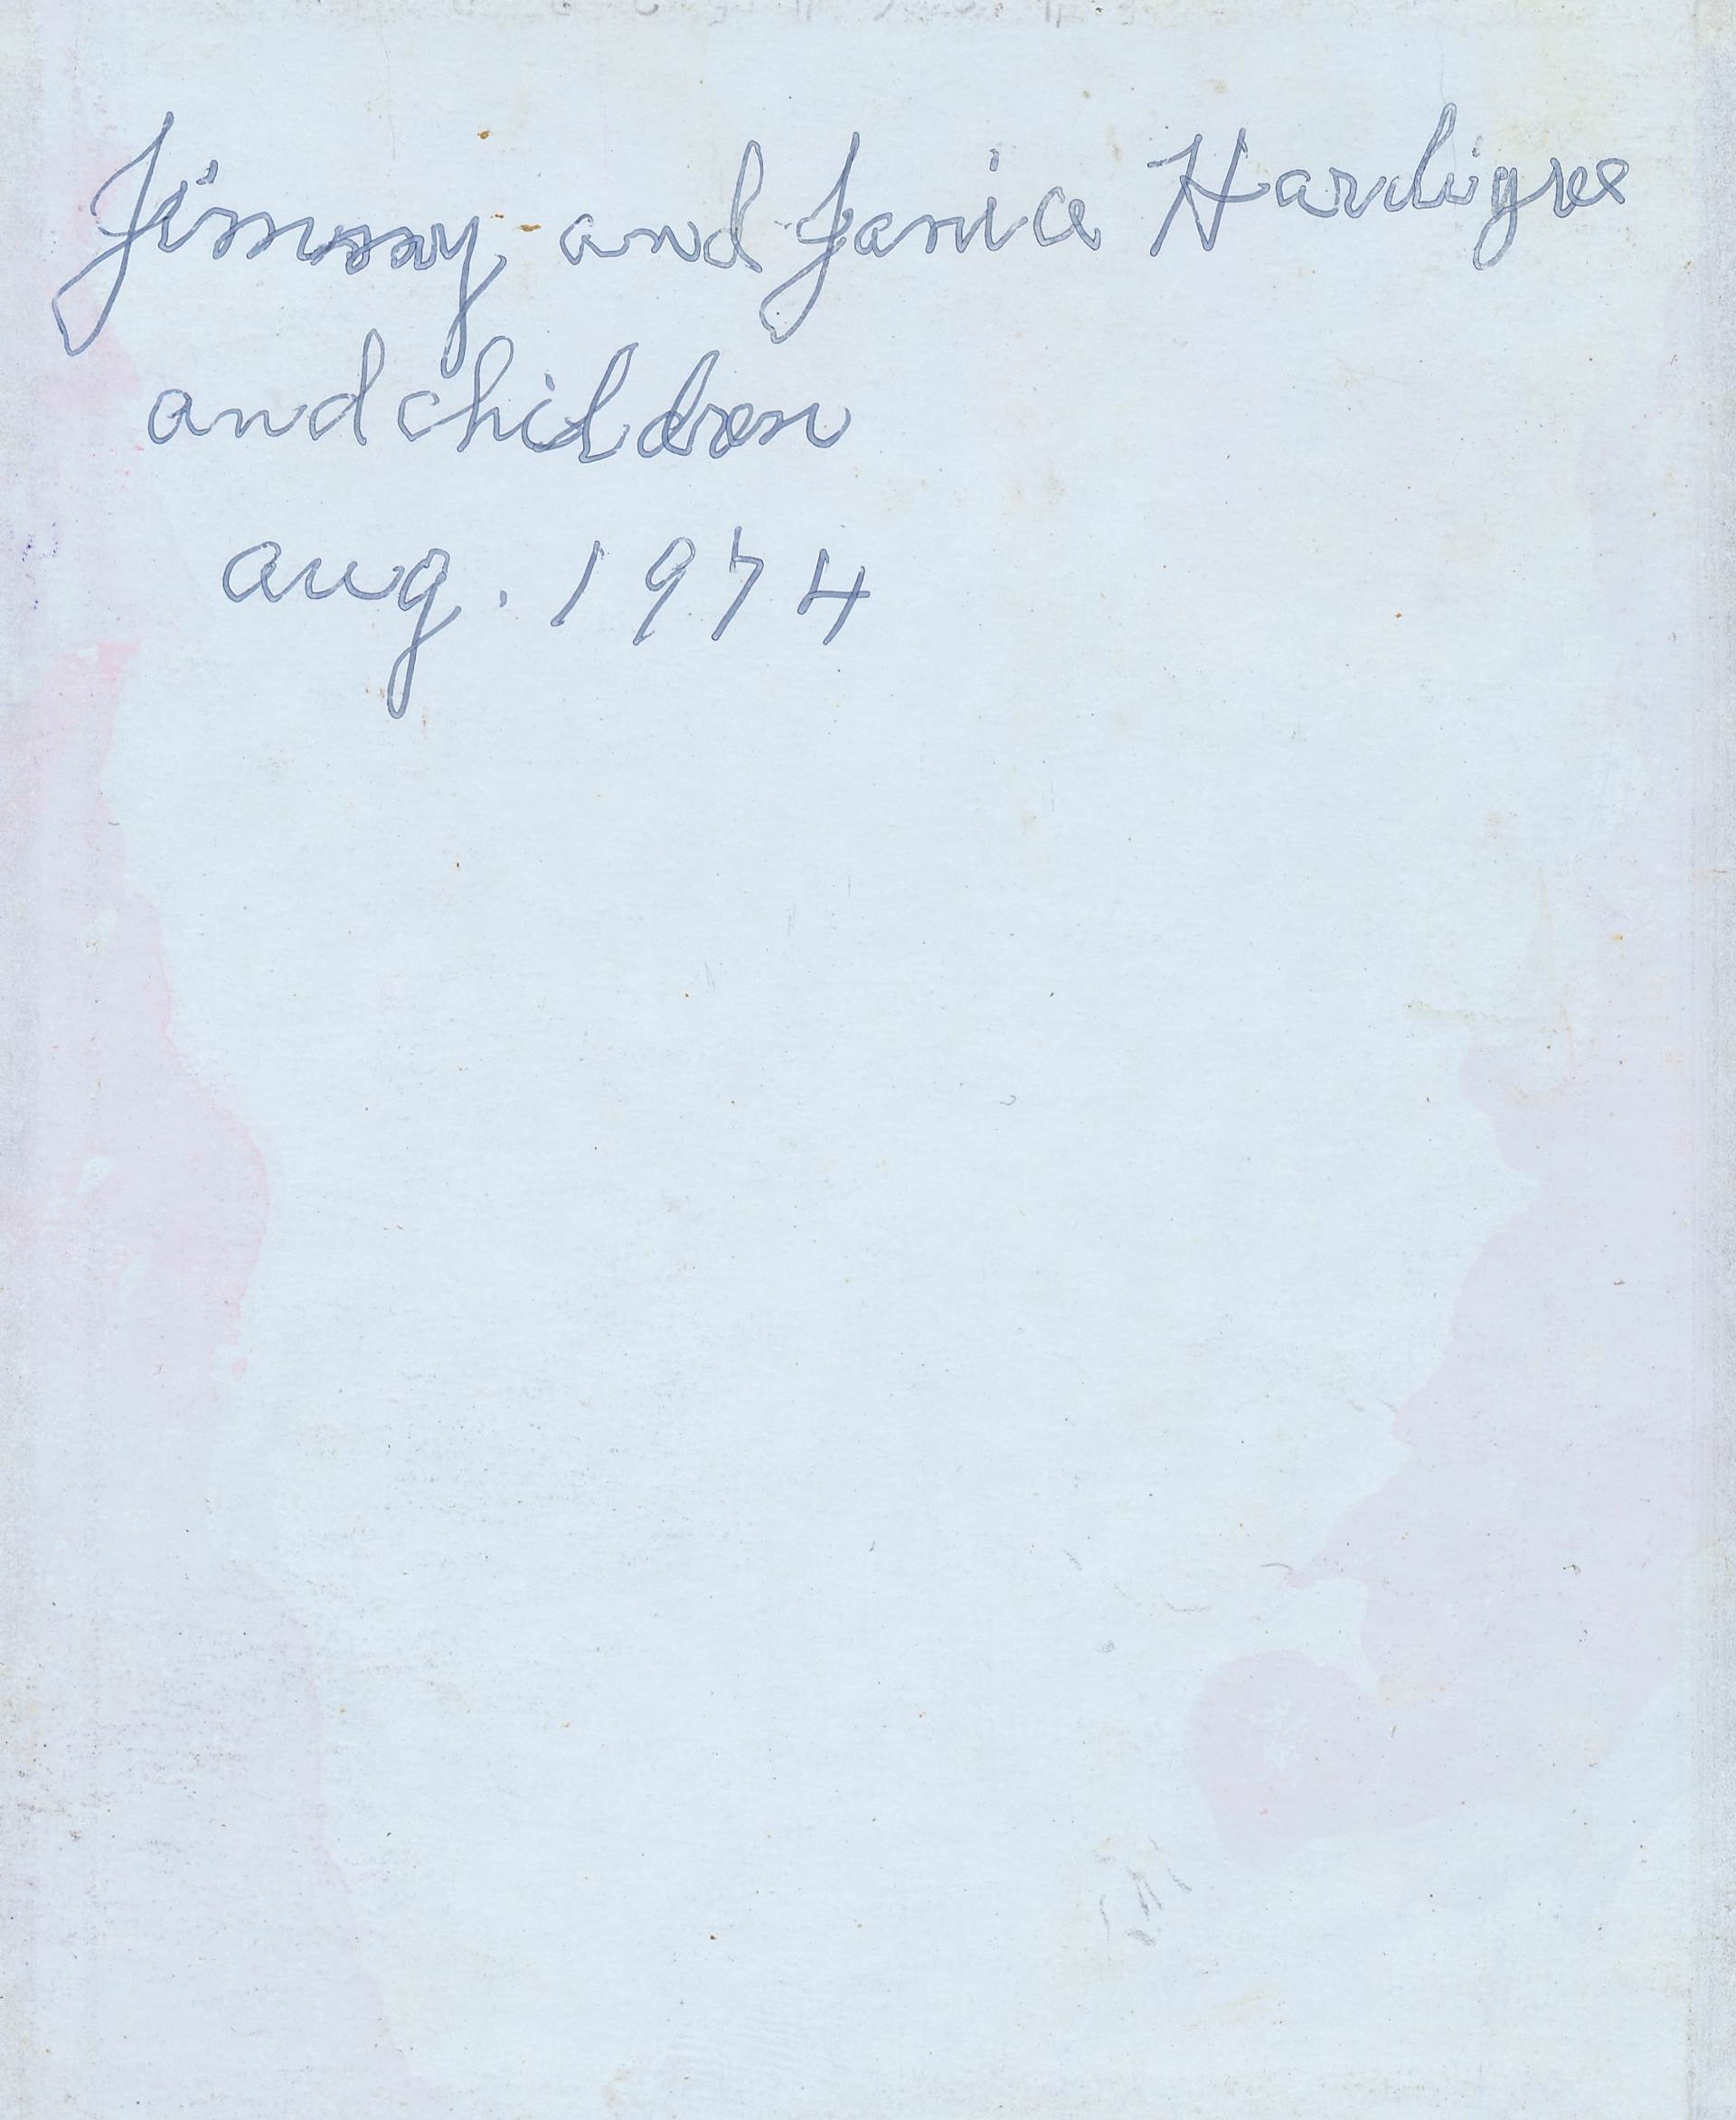 Jimmy and Janice Hardigree
and children
aug. 1974